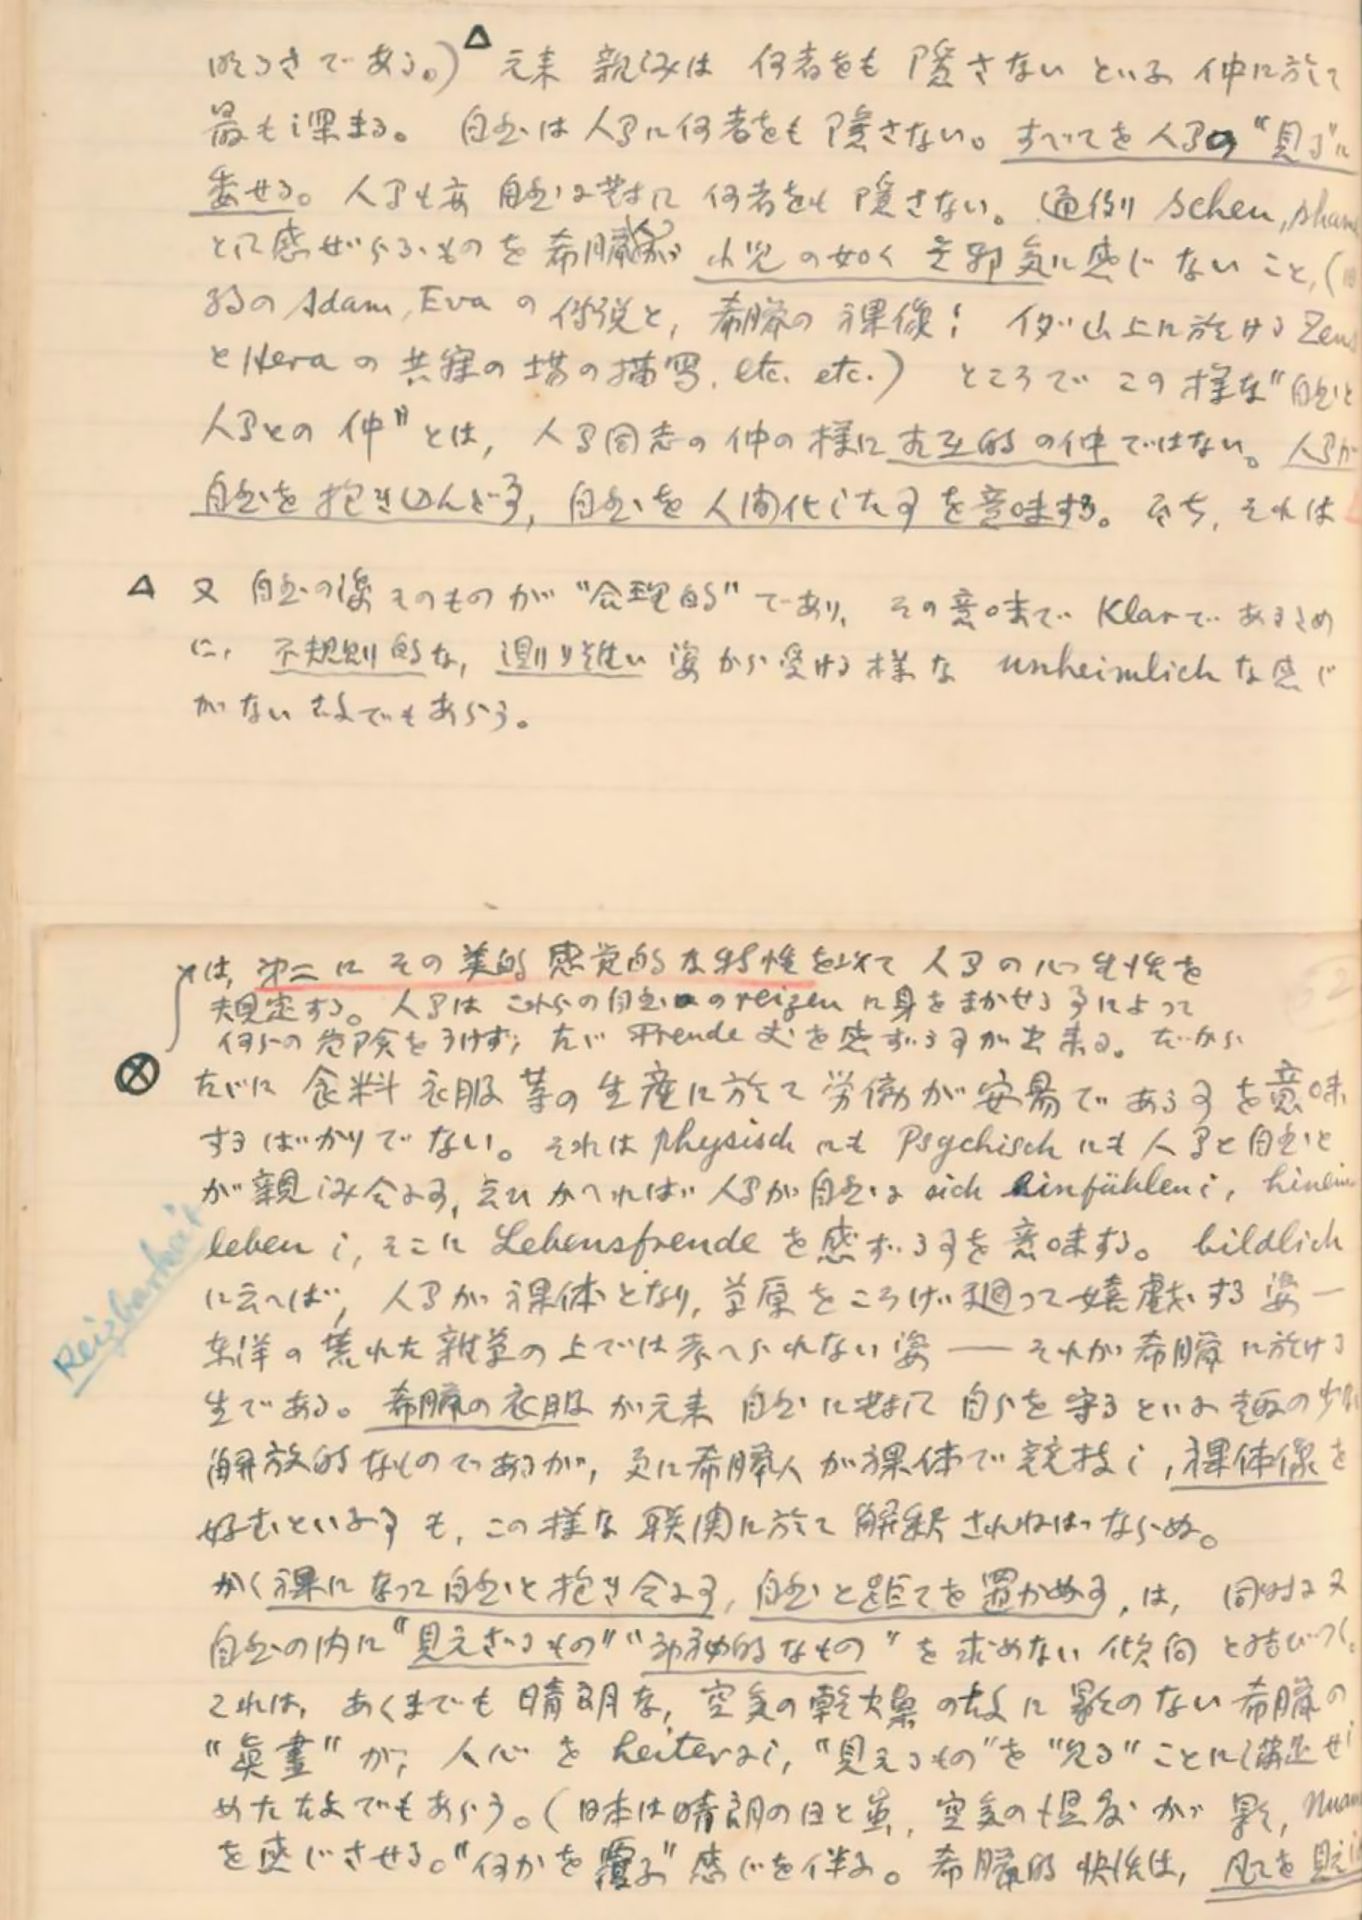 明るさである。)△ 元来 親しみは 何者をも 隠さない といふ 仲に於て
最も深まる。 自然は人間に何者をも隠さない。すべてを人間の"見る"に
委せる。人間も亦 自然に対して 何者をも 隠さない。(通例 Scheu, sham
として感ぜらるゝものを希臘人が 小児の如く 無邪気に感じないこと,(旧
約の Adam, Eva の伝説と, 希臘の裸像! イダ山上に於ける Zeus
と Hera の 共寝の場の描写. etc. etc.) ところで この様な"自然と
人間との仲"とは, 人間同志の仲の様に 相互的の仲ではない。人間が
自然を抱き込んだ事, 自然を人間化した事を意味する。即ち, それは
△ 又 自然の姿そのものが "合理的" であり, その意味で Klar であるため
に, 不規則的な, 測り難い 姿から受ける様な unheimlich な感じ
がない故でもあらう。
は, 第二に その美的 感覚的な特性を以て 人間の心 生活を
規定する。人間は これらの自然の reizen に身をまかせる事によって
何らの危険をうけず, たゞ Freude 丈を感ずる事が出来る。だから
⊗ たゞに 食料 衣服 等の生産に於て 労働が安易である事を意味
するばかりでない。それは physisch にも Psychisch にも 人間と自然と
が親しみ合ふ事, 云ひかへれば 人間が自然に sich einfühlen し, hinein
leben し, そこに Lebensfreude を感ずる事を意味する。 bildlich
に云へば, 人間が裸体となり, 草原をころげ廻って嬉戯する姿―
東洋の荒れた雑草の上では考へられない姿 ―― それが希臘に於ける
生である。希臘の衣服が元来 自然に対して自らを守るといふ趣の少い
解放的なものであるが, 更に希臘人が裸体で競技し, 裸体像を
好むといふ事も, この様な聯関に於て解釈されねばならぬ。
かく裸になって自然と抱き合ふ事, 自然と距てを置かぬ事, は, 同時に又
自然の内に"見えざるもの" "神秘的なもの" を求めない傾向と結びつく。
これは, あくまでも晴朗な, 空気の乾燥の故に影のない希臘の
"真昼" が, 人心を heiter にし, "見えるもの"を"見る"ことに満足せし
めた故でもあらう。(日本は晴朗の日と雖, 空気の湿気が 影, Nuan
を感じさせる。"何かを覆ふ"感じを伴ふ。希臘的快活は, 凡てを見
Reizbarkeit